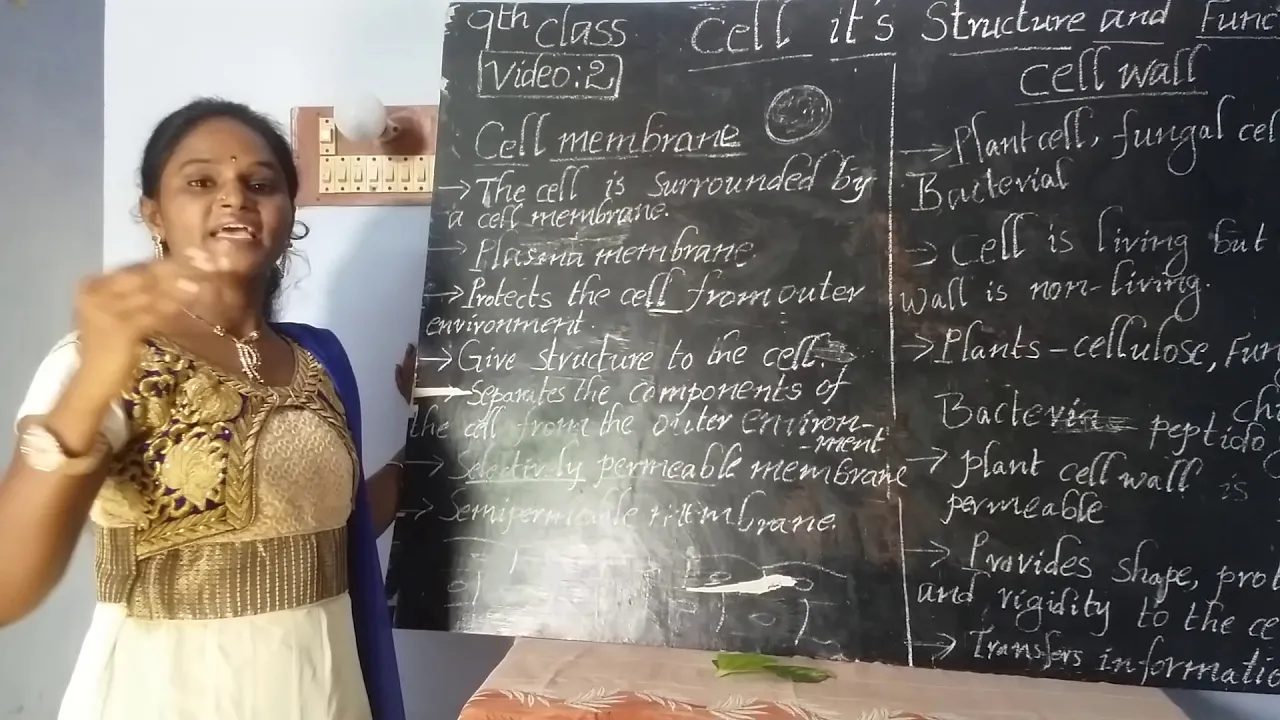 9th class
Cell it's Structure and Func
Video:2
Cell membrane
→ The cell is surrounded by
a cell membrane.
→ Plasma membrane.
→ Protects the cell from outer
environment.
→ Give structure to the cell.
→ Separates the components of
the cell from the outer environ-
ment
→ Selectively permeable membrane
→ Semipermeable membrane.
Cell wall
→ Plant cell, fungal cel
Bacterial
→ Cell is living but
wall is non-living.
→ Plants - cellulose, Fun
chi
Bacteria peptido
→ plant cell wall is
permeable
→ Provides shape, prot
and rigidity to the ce
→ Transfers informatio